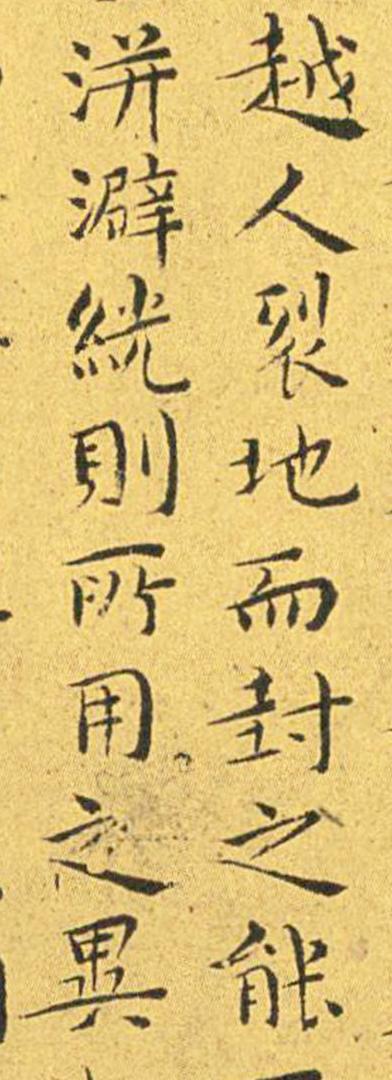 越人裂地而封之能
洴澼絖則所用之異